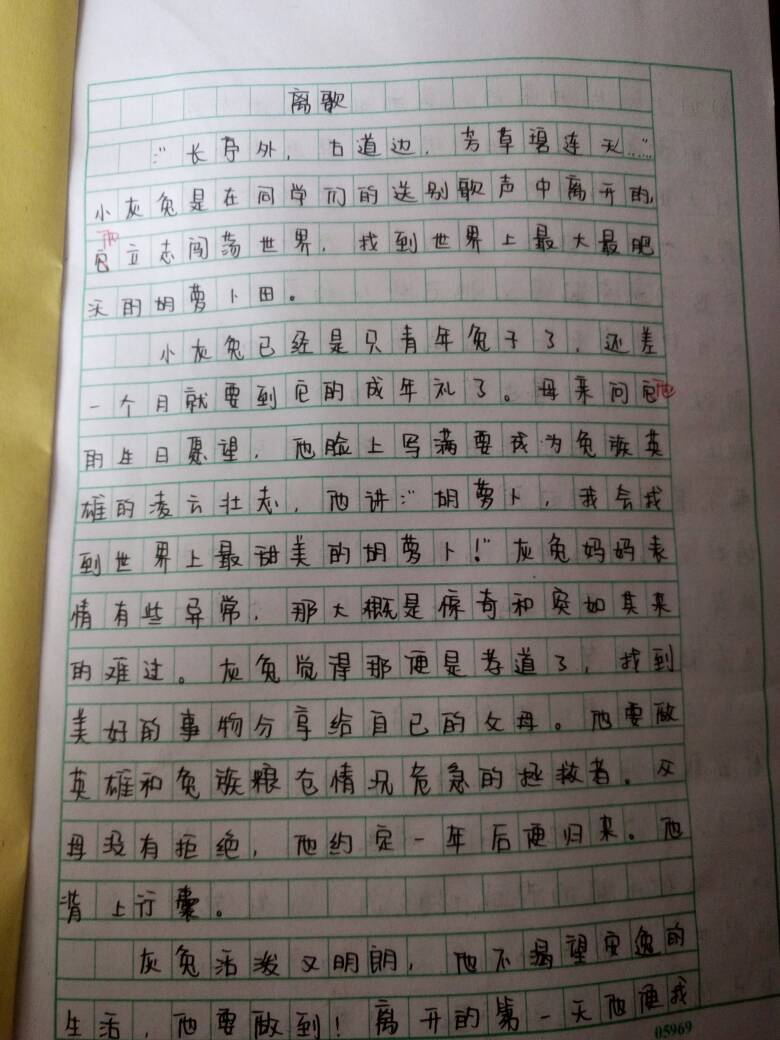 离歌
："长亭外，古道边，芳草碧连天……"
小灰兔是在同学们的送别歌声中离开的，
他
它立志闯荡世界，找到世界上最大最肥
沃的胡萝卜田。
小灰兔已经是只青年兔子了，还差
一个月就要到它的成年礼了。母亲问它他
的生日愿望，他脸上写满要成为兔族英
雄的凌云壮志，他讲："胡萝卜，我会找
到世界上最甜美的胡萝卜！"灰兔妈妈表
情有些异常，那大概是惊奇和突如其来
的难过。灰兔觉得那便是孝道了，找到
美好的事物分享给自己的父母。他要做
英雄和兔族粮仓情况危急的拯救者。父
母没有拒绝，他约定一年后便归来。他
背上行囊。
灰兔活泼又明朗，他不渴望安逸的
生活，他要做到！离开的第一天他便找
05969